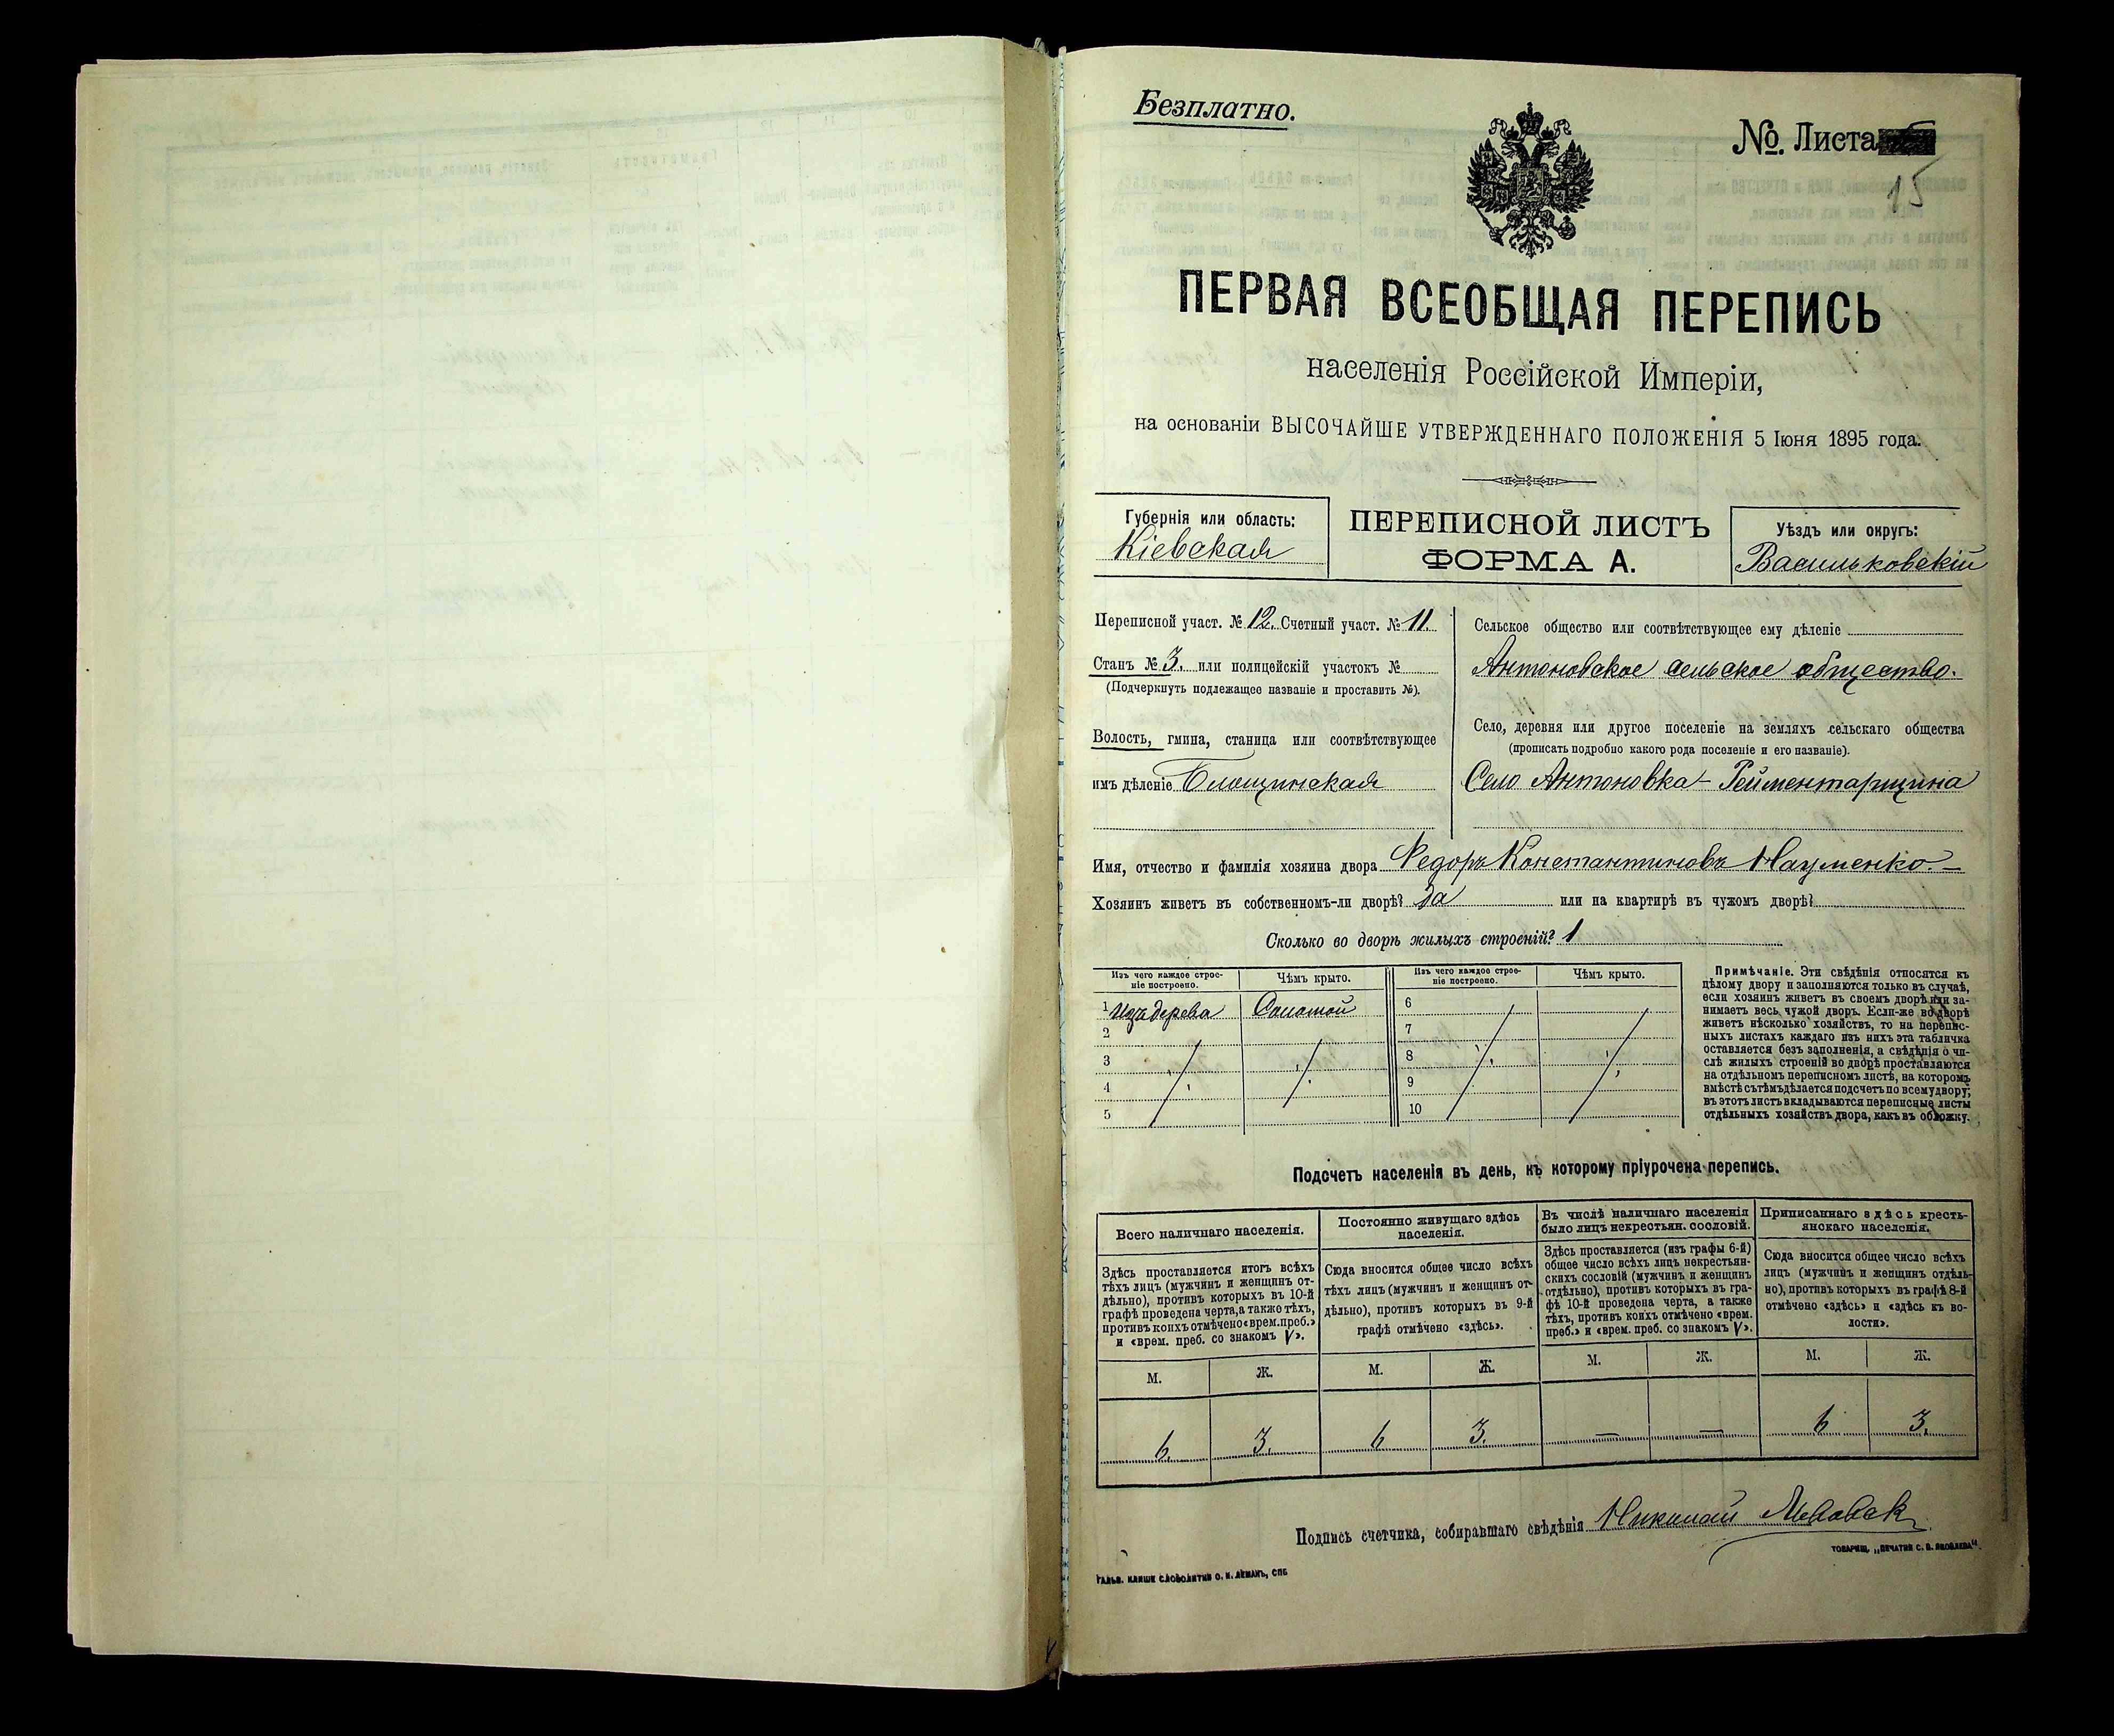 Безплатно.
№ Листа
15
ПЕРВАЯ ВСЕОБЩАЯ ПЕРЕПИСЬ
населенія Россійской Имперіи,
на основаніи ВЫСОЧАЙШЕ УТВЕРЖДЕННАГО ПОЛОЖЕНІЯ 5 Іюня 1895 года.
Губернія или область:
Кіевская
ПЕРЕПИСНОЙ ЛИСТЪ
ФОРМА А.
Уѣздъ или округъ:
Васильковскій
Переписной участ. № 12. Счетный участ. № 11.
Станъ № 3. или полицейскій участокъ №
(Подчеркнуть подлежащее названіе и проставить №).
Волость, гмина, станица или соотвѣтствующее
имъ дѣленіе Блощинская
Сельское общество или соотвѣтствующее ему дѣленіе
Антоновское сельское общество.
Село, деревня или другое поселеніе на земляхъ сельскаго общества
(прописать подробно какого рода поселеніе и его названіе).
Село Антоновка-Рейментарщина
Имя, отчество и фамилія хозяина двора Федоръ Константиновъ Науменко
Хозяинъ живетъ въ собственномъ-ли дворѣ? Да или на квартирѣ въ чужомъ дворѣ?
Сколько во дворѣ жилыхъ строеній? 1
Изъ чего каждое строе-
ніе построено.
Чѣмъ крыто.
Изъ чего каждое строе-
ніе построено.
Чѣмъ крыто.
1 Изъ дерева Соломой 6
2 7
3 8
4 9
5 10
Примѣчаніе. Эти свѣдѣнія относятся къ
цѣлому двору и заполняются только въ случаѣ,
если хозяинъ живетъ въ своемъ дворѣ или за-
нимаетъ весь чужой дворъ. Если-же во дворѣ
живетъ нѣсколько хозяйствъ, то на перепис-
ныхъ листахъ каждаго изъ нихъ эта табличка
оставляется безъ заполненія, а свѣдѣнія о чи-
слѣ жилыхъ строеній во дворѣ проставляются
на отдѣльномъ переписномъ листѣ, на которомъ
вмѣстѣ съ тѣмъ дѣлается подсчетъ по всему двору;
въ этотъ листъ вкладываются переписные листы
отдѣльныхъ хозяйствъ двора, какъ въ обложку.
Подсчетъ населенія въ день, къ которому пріурочена перепись.
Всего наличнаго населенія.
Здѣсь проставляется итогъ всѣхъ
тѣхъ лицъ (мужчинъ и женщинъ от-
дѣльно), противъ которыхъ въ 10-й
графѣ проведена черта, а также тѣхъ,
противъ коихъ отмѣчено «врем. преб.»
и «врем. преб. со знакомъ V».
Постоянно живущаго здѣсь
населенія.
Сюда вносится общее число всѣхъ
тѣхъ лицъ (мужчинъ и женщинъ от-
дѣльно), противъ которыхъ въ 9-й
графѣ отмѣчено «здѣсь».
Въ числѣ наличнаго населенія
было лицъ некрестьян. сословій.
Здѣсь проставляется (изъ графы 6-й)
общее число всѣхъ лицъ некрестьян-
скихъ сословій (мужчинъ и женщинъ
отдѣльно), противъ которыхъ въ гра-
фѣ 10-й проведена черта, а также
тѣхъ, противъ коихъ отмѣчено «врем.
преб.» и «врем. преб. со знакомъ V».
Приписаннаго здѣсь кресть-
янскаго населенія.
Сюда вносится общее число всѣхъ
лицъ (мужчинъ и женщинъ отдѣль-
но), противъ которыхъ въ графѣ 8-й
отмѣчено «здѣсь» и «здѣсь къ во-
лости».
М. Ж. М. Ж. М. Ж. М. Ж.
6. 3. 6 3. — — 6 3.
Подпись счетчика, собиравшаго свѣдѣнія Николай
ТОВАРИЩ. „ПЕЧАТНЯ С. П. ЯКОВЛЕВА“.
ГАЛЬВ. КЛИШЕ СЛОВОЛИТНИ О. И. ЛЕМАНЪ, СПБ